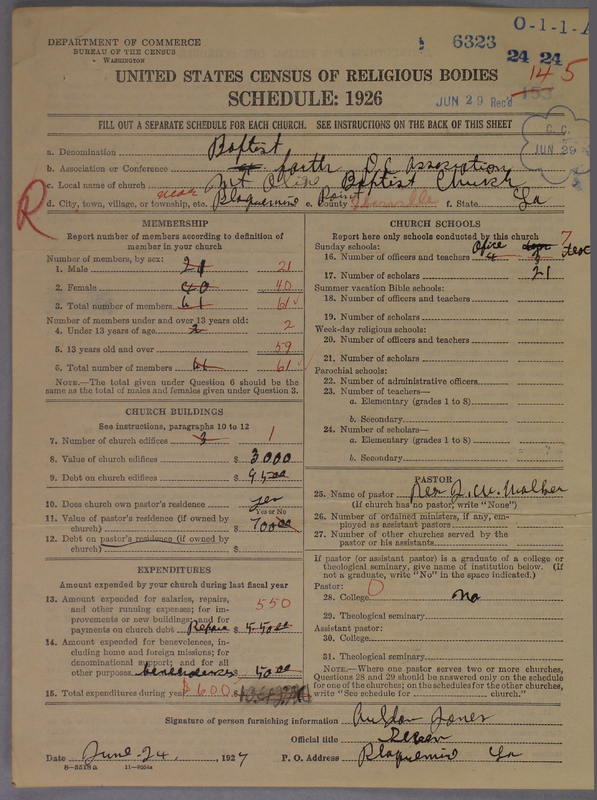 O-1-1-A
DEPARTMENT OF COMMERCE
BUREAU OF THE CENSUS
WASHINGTON
6323
24 24
UNITED STATES CENSUS OF RELIGIOUS BODIES
145
153
SCHEDULE: 1926
JUN 29 Rec'd
FILL OUT A SEPARATE SCHEDULE FOR EACH CHURCH. SEE INSTRUCTIONS ON THE BACK OF THIS SHEET
C. C.
JUN 29
a. Denomination Baptist
b. Association or Conference fourth D.C. Association
c. Local name of church Mt Olive Baptist Church
d. City, town, village, or township, etc. near Plaquemine e. County Iberville f. State La
R
MEMBERSHIP
Report number of members according to definition of member in your church
Number of members, by sex:
1. Male 21 21
2. Female 40 40
3. Total number of members 61 61
Number of members under and over 13 years old:
4. Under 13 years of age 2 2
5. 13 years old and over 59
6. Total number of members 61 61
NOTE.—The total given under Question 6 should be the same as the total of males and females given under Question 3.
CHURCH BUILDINGS
See instructions, paragraphs 10 to 12
7. Number of church edifices 3 1
8. Value of church edifices $ 3000
9. Debt on church edifices $ 9500
10. Does church own pastor's residence yes
Yes or No
11. Value of pastor's residence (if owned by church) $ 70000
12. Debt on pastor's residence (if owned by church) $
EXPENDITURES
Amount expended by your church during last fiscal year
13. Amount expended for salaries, repairs, and other running expenses; for improvements or new buildings; and for payments on church debt Repair $ 55000
550
14. Amount expended for benevolences, including home and foreign missions; for denominational support; and for all other purposes 5000
15. Total expenditures during year $600
CHURCH SCHOOLS
Report here only schools conducted by this church
Sunday schools:
16. Number of officers and teachers office 4 3 7
17. Number of scholars 21
Summer vacation Bible schools:
18. Number of officers and teachers
19. Number of scholars
Week-day religious schools:
20. Number of officers and teachers
21. Number of scholars
Parochial schools:
22. Number of administrative officers
23. Number of teachers—
a. Elementary (grades 1 to 8)
b. Secondary
24. Number of scholars—
a. Elementary (grades 1 to 8)
b. Secondary
PASTOR
25. Name of pastor Rev J. W. Walker
(If church has no pastor, write "None")
26. Number of ordained ministers, if any, employed as assistant pastors
27. Number of other churches served by the pastor or his assistants
If pastor (or assistant pastor) is a graduate of a college or theological seminary, give name of institution below. (If not a graduate, write "No" in the space indicated.)
Pastor:
28. College 0 No
29. Theological seminary
Assistant pastor:
30. College
31. Theological seminary
NOTE.—Where one pastor serves two or more churches, Questions 28 and 29 should be answered only on the schedule for one of the churches; on the schedules for the other churches, write "See schedule for church."
Signature of person furnishing information Jones
Official title
Date June 24, 1927 P. O. Address Plaquemine La
8-5518a 11-9554a